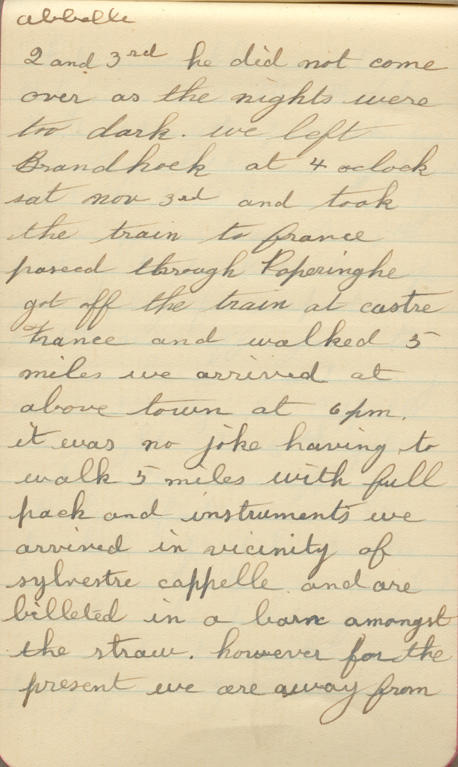 abbelle
2 and 3rd he did not come
over as the nights were
too dark. we left
Brandhoek at 4 oclock
sat nov 3rd and took
the train to france
passed through Poperinghe
got off the train at castre
france and walked 5
miles we arrived at
above town at 6 pm.
it was no joke having to
walk 5 miles with full
pack and instruments we
arrived in vicinity of
sylvestre cappelle and are
billeted in a barn amongst
the straw. however for the
present we are away from